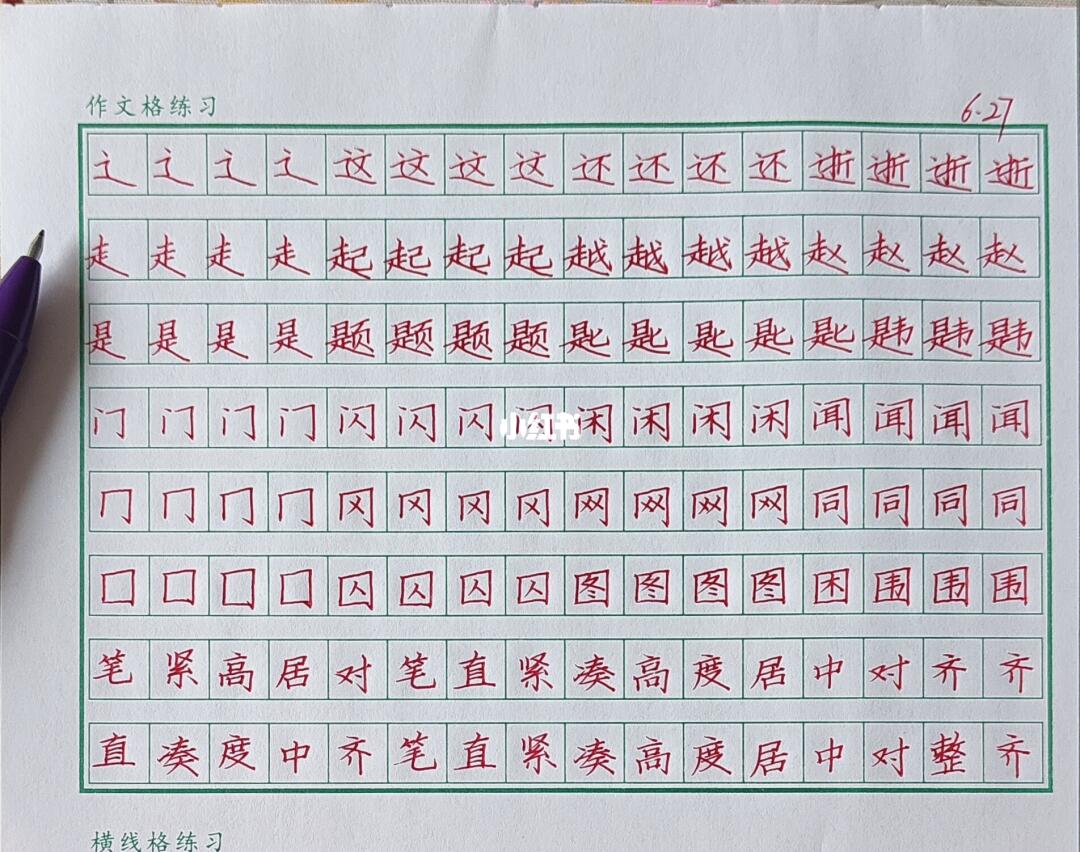 作文格练习 6.27
辶辶辶辶这这这这还还还还逝逝逝逝
走走走走起起起起越越越越赵赵赵赵
是是是是题题题题匙匙匙匙匙韪韪韪
门门门门闪闪闪闪闲闲闲闲闻闻闻闻
冂冂冂冂冈冈冈冈网网网网同同同同
囗囗囗囗囚囚囚囚图图图图困围围围
笔紧高居对笔直紧凑高度居中对齐齐
直凑度中齐笔直紧凑高度居中对整齐
横线格练习
小红书